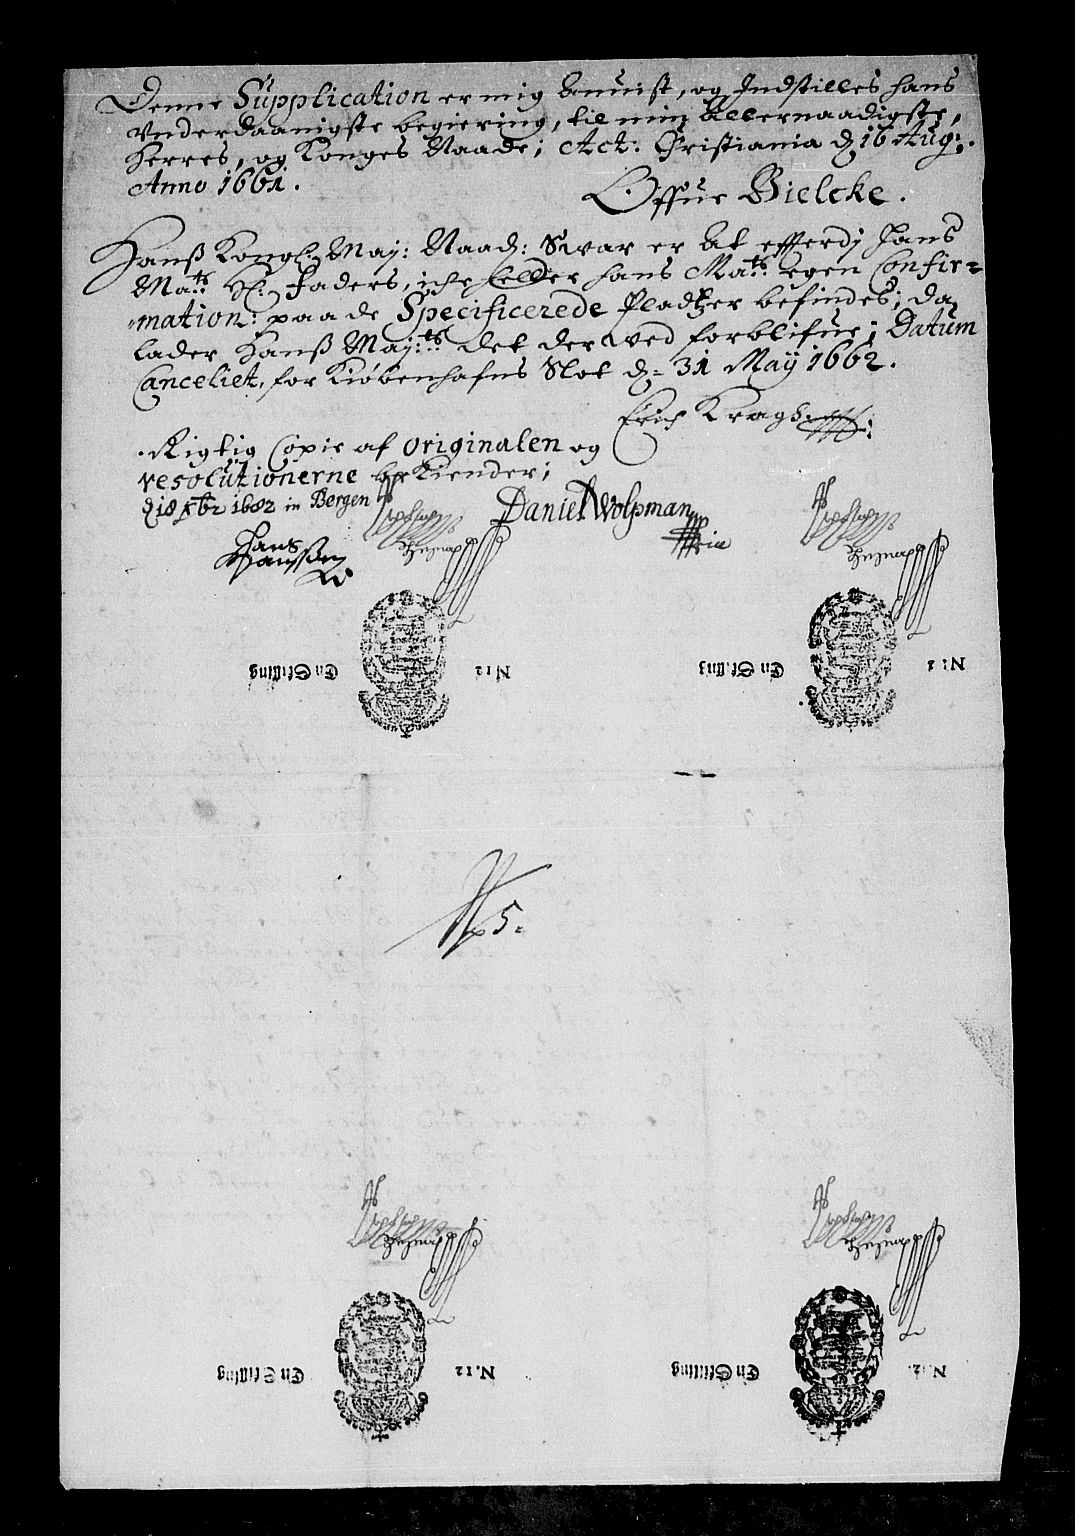 Denne Supplication er mig Anuist, og Indstilles hans
Vnderdaanigste begiering, til min Allernaadigste,
Herres, og Konges Naade; Act. Christiania d 16 Aug:
Anno 1661.
Offue Bielcke.
Hanß Kongl: May: Naad: Swar er At efferdj Hans
Ma:ts Hl: Faders, iche heller hans Ma:ts egen Confir=
mation: paa de Specificerede Pladtzer befindes; da
lader Hanß May:ts det der wed forblifue; Datum
Canceliet, for Kiøbenhafns Slot d= 31 May 1662.
Erich Krag
Rigtig Copie af originalen og
resolutionerne be Kiender;
d 18 in Bergen
Daniel Wolpman
Hans
Hanssen
En Skilling N 12
N:
5.
En Skilling N. 12
En Skilling N. 12.